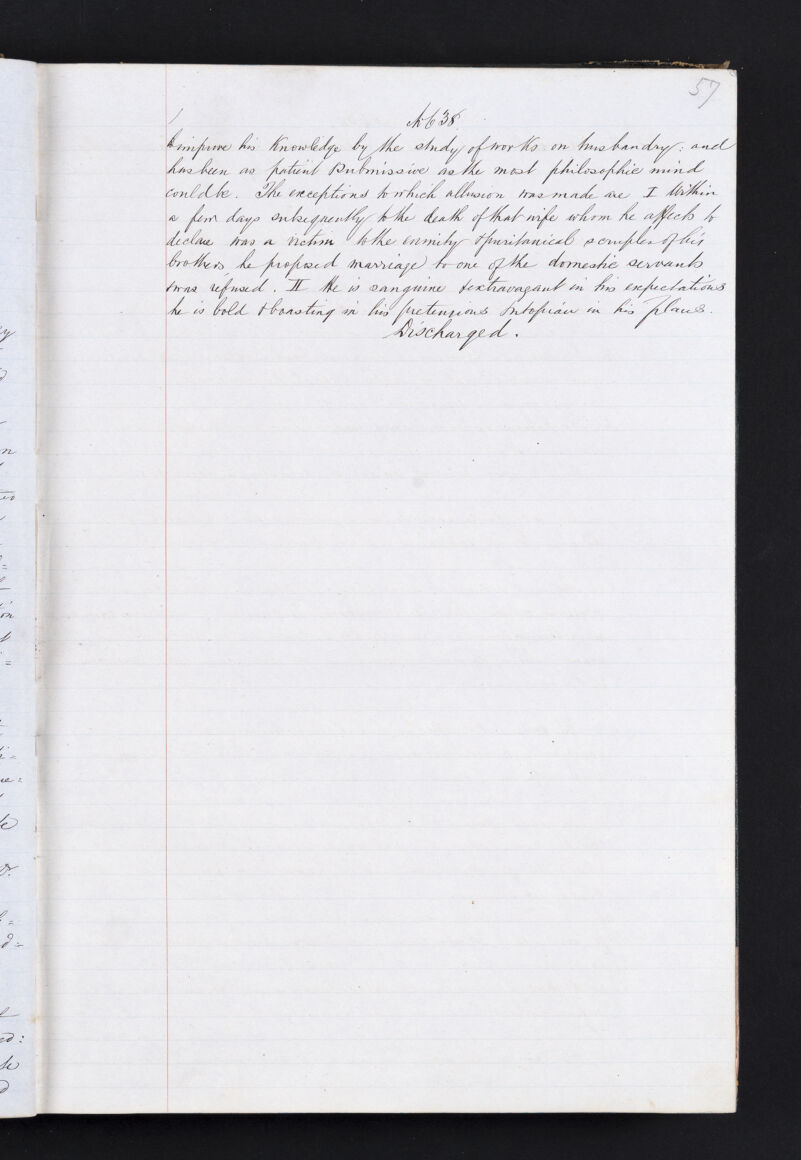 57
No 38.
to improve his knowledge by the study of works on husbandry: and
has been as patient & submissive as the most philosophic mind
could be. The exceptions to which allusion was made are I Within
a few days subsequently to the death of that wife whom he affects to
declare was a victim to the enmity & puritanical scruples of his
brothers he proposed marriage to one of the domestic servants
& was refused. II He is sanguine & extravagant in his expectations
he is bold & boasting in his pretensions & utopian in his plans.
Discharged.